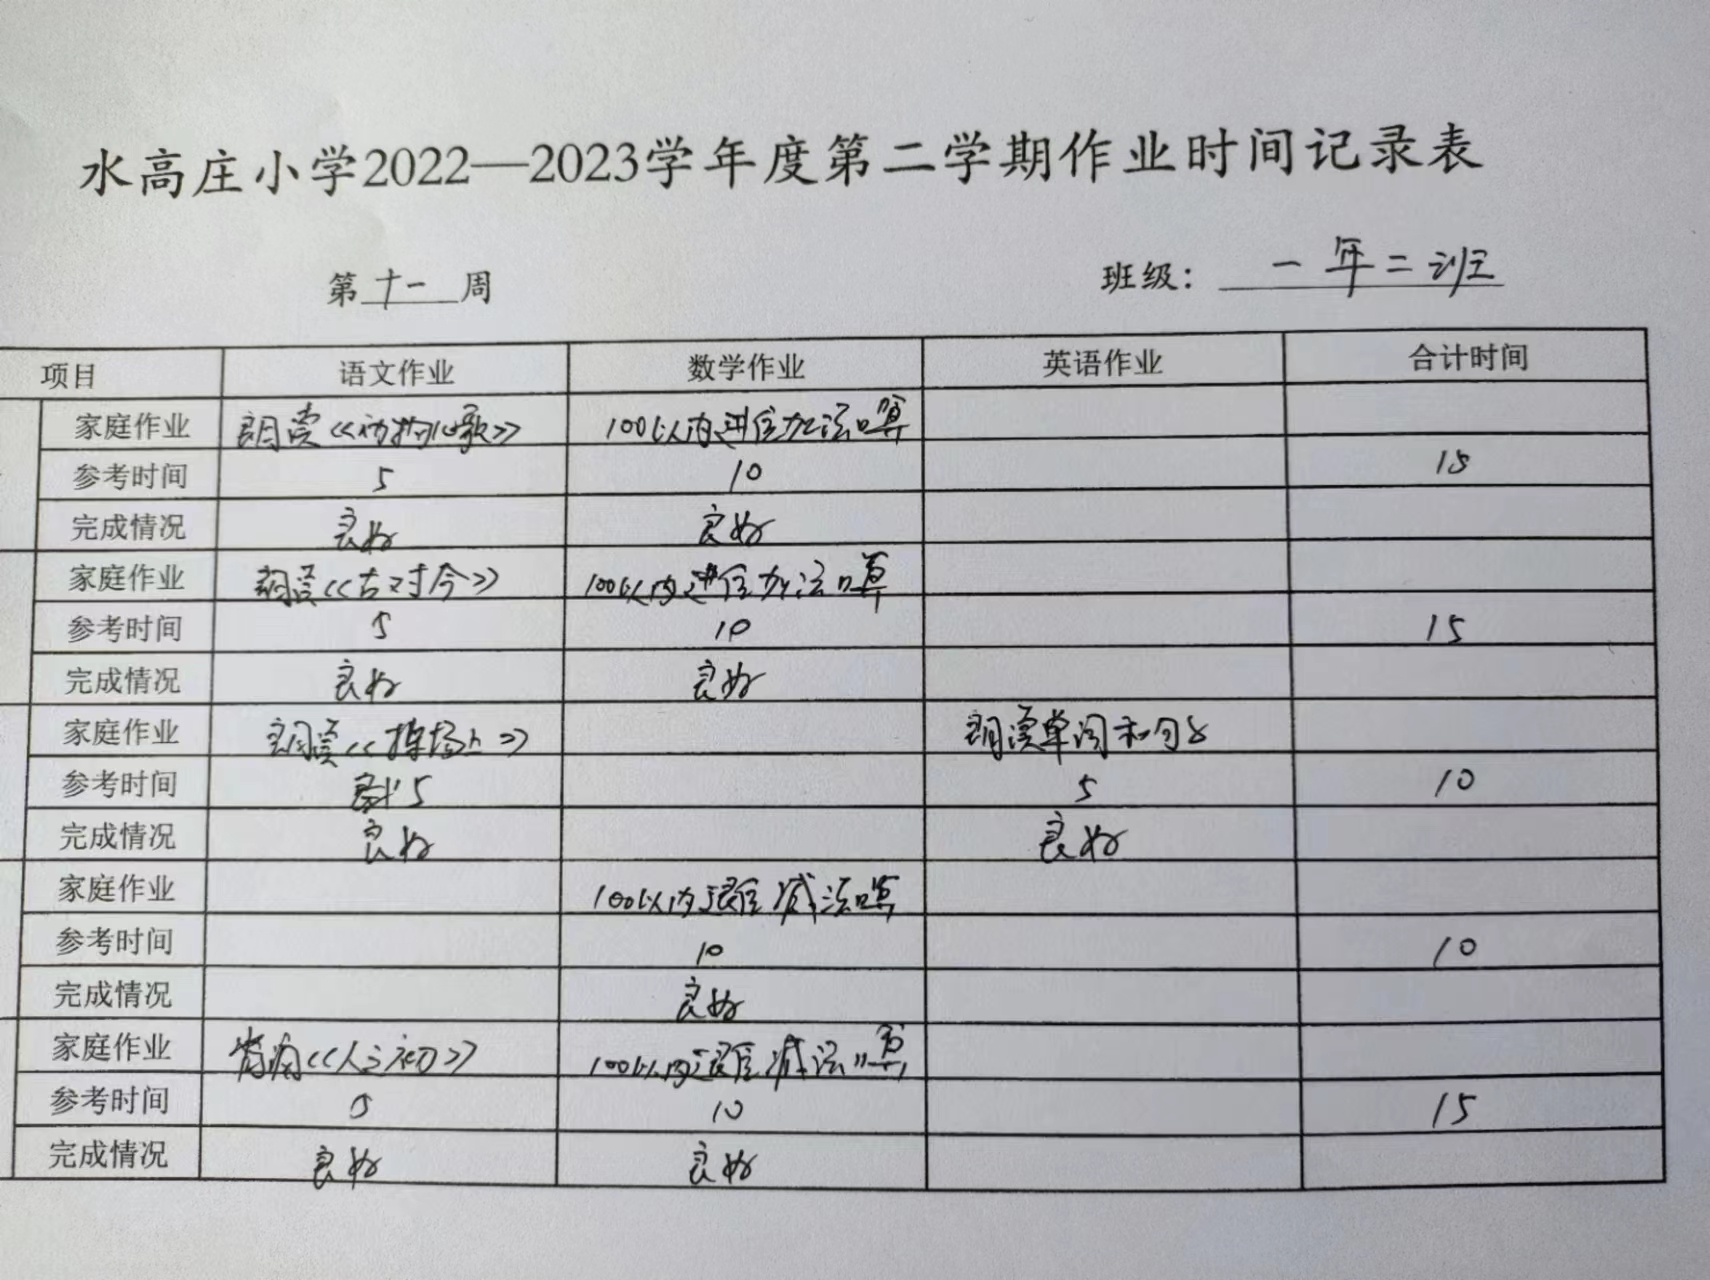 水高庄小学2022—2023学年度第二学期作业时间记录表
第十一周 班级：一年二班
项目 语文作业 数学作业 英语作业 合计时间
家庭作业 朗读《动物儿歌》 100以内进位加法口算
参考时间 5 10 15
完成情况 良好 良好
家庭作业 朗读《古对今》 100以内进位加法口算
参考时间 5 10 15
完成情况 良好 良好
家庭作业 朗读《操场上》 朗读单词和句子
参考时间 5 5 10
完成情况 良好 良好
家庭作业 100以内退位减法口算
参考时间 10 10
完成情况 良好
家庭作业 背诵《人之初》 100以内退位减法口算
参考时间 5 10 15
完成情况 良好 良好